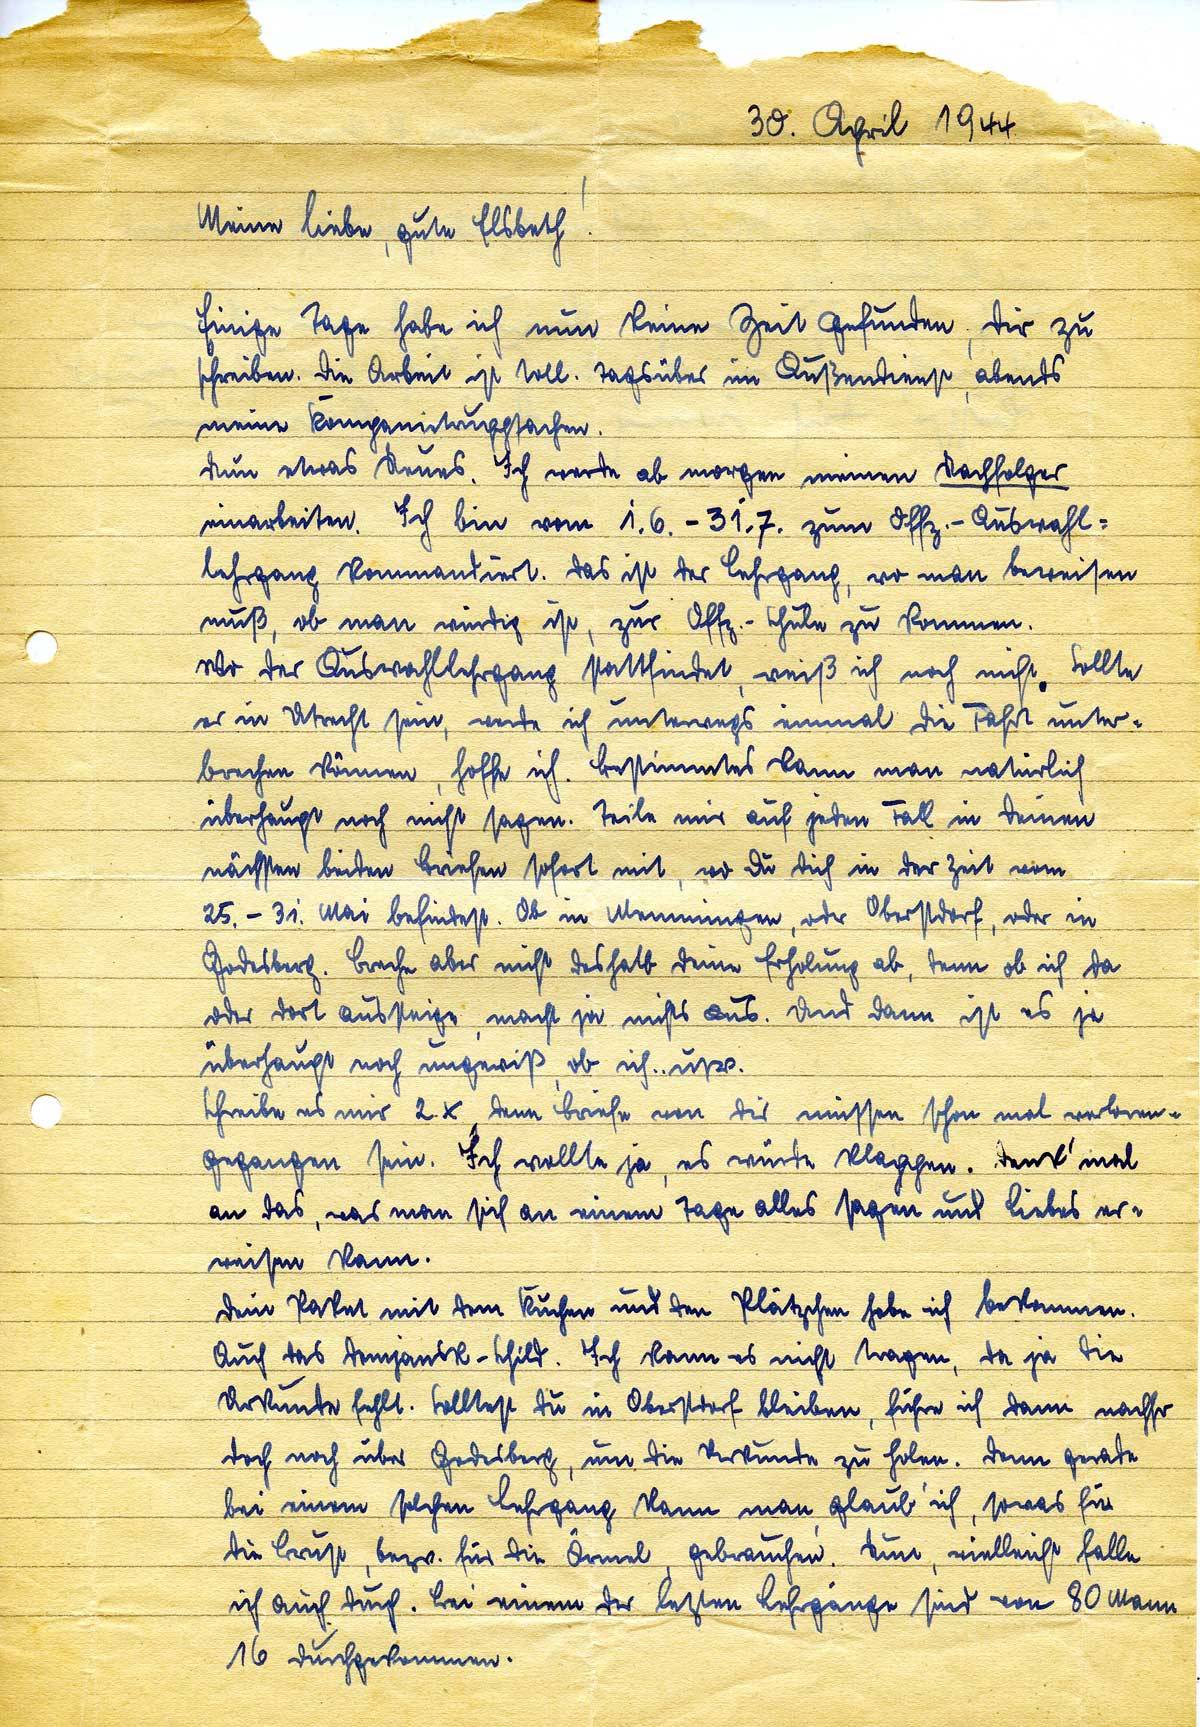 30. April 1944
Meine liebe, gute Elsbeth!
Einige Tage habe ich nun keine Zeit gefunden, Dir zu
schreiben. Die Arbeit ist toll. Tagsüber im Außendienst, abends
meine Kompanietruppsachen.
Nun etwas Neues. Ich werde ab morgen meinen Nachfolger
einarbeiten. Ich bin vom 1.6. - 31.7. zum Offz.-Auswahl=
lehrgang kommandiert. Das ist der Lehrgang, wo man beweisen
muß, ob man würdig ist, zur Offz.-Schule zu kommen.
Wo der Auswahllehrgang stattfindet, weiß ich noch nicht. Sollte
er in Utrecht sein, werde ich unterwegs einmal die Fahrt unter=
brechen können, hoffe ich. Bestimmtes kann man natürlich
überhaupt noch nicht sagen. Teile mir auf jeden Fall in Deinen
nächsten beiden Briefen sofort mit, wo Du Dich in der Zeit vom
25. - 31. Mai befindest. Ob in Memmingen, oder Oberstdorf, oder in
Godesberg. Breche aber nicht deshalb Deine Erholung ab, denn ob ich da
oder dort aussteige, macht ja nichts aus. Und dann ist es ja
überhaupt noch ungewiß, ob ich.. usw.
Schreibe es mir 2 x, denn Briefe von Dir müssen schon mal verloren=
gegangen sein. Ich wollte ja, es würde klappen. Denk' mal
an das, was man sich an einem Tage alles sagen und Liebes er=
weisen kann.
Dein Paket mit dem Kuchen und den Plätzchen habe ich bekommen.
Auch das Demjansk-Schild. Ich kann es nicht tragen, da ja die
Urkunde fehlt. Solltest Du in Oberstdorf bleiben, führe ich dann nachher
doch noch über Godesberg, um die Urkunde zu holen. Denn gerade
bei einem solchen Lehrgang kann man, glaub' ich, sowas für
die Brust, bezw. für die Ärmel, gebrauchen. Nun, vielleicht falle
ich auch durch. Bei einem der letzten Lehrgänge sind von 80 Mann
16 durchgekommen.